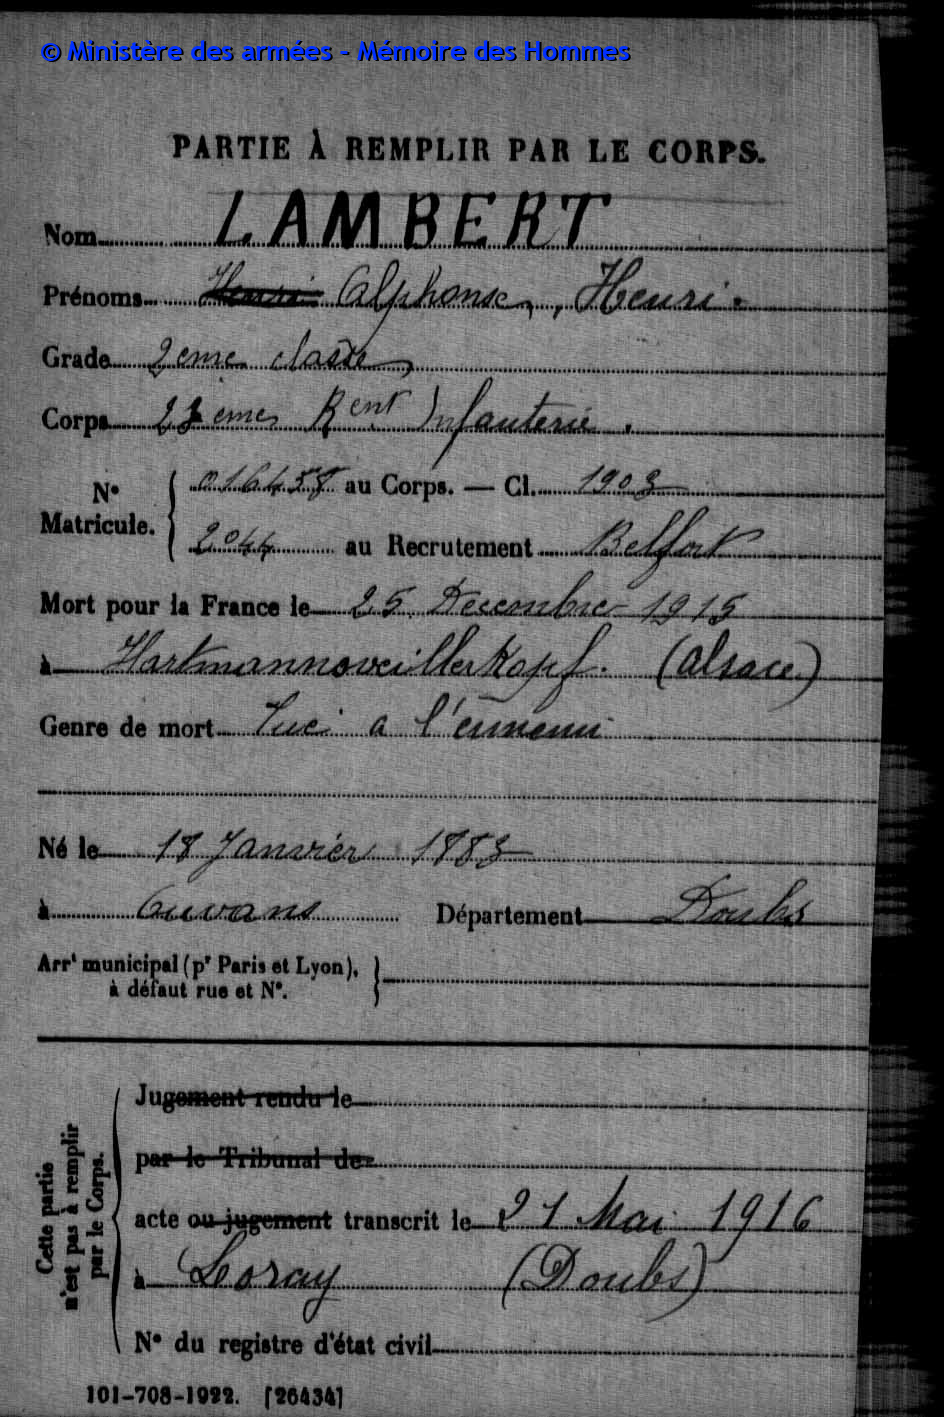 © Ministère des armées - Mémoire des Hommes
PARTIE À REMPLIR PAR LE CORPS.
Nom LAMBERT
Prénoms Henri Alphonse, Henri.
Grade 2eme classe
Corps 23 ème Rent Infanterie.
No Matricule. { 016458 au Corps. — Cl. 1903
2044 au Recrutement Belfort
Mort pour la France le 25 Decembre 1915
à Hartmannsveillerkopf. (Alsace)
Genre de mort Tué a l'ennemi
Né le 18 Janvier 1883
à Ouvans Département Doubs
Arrt municipal (pr Paris et Lyon),
à défaut rue et No.
Cette partie n'est pas à remplir par le Corps.
Jugement rendu le
par le Tribunal de
acte ou jugement transcrit le 21 Mai 1916
à Loray (Doubs)
No du registre d'état civil
101-708-1922. [26434]